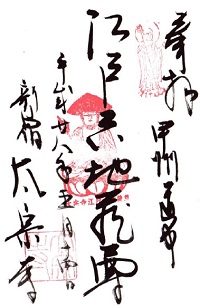 奉拝
甲州道中
江戸六地蔵尊
平成廿八年五月十四日
新宿 太宗寺